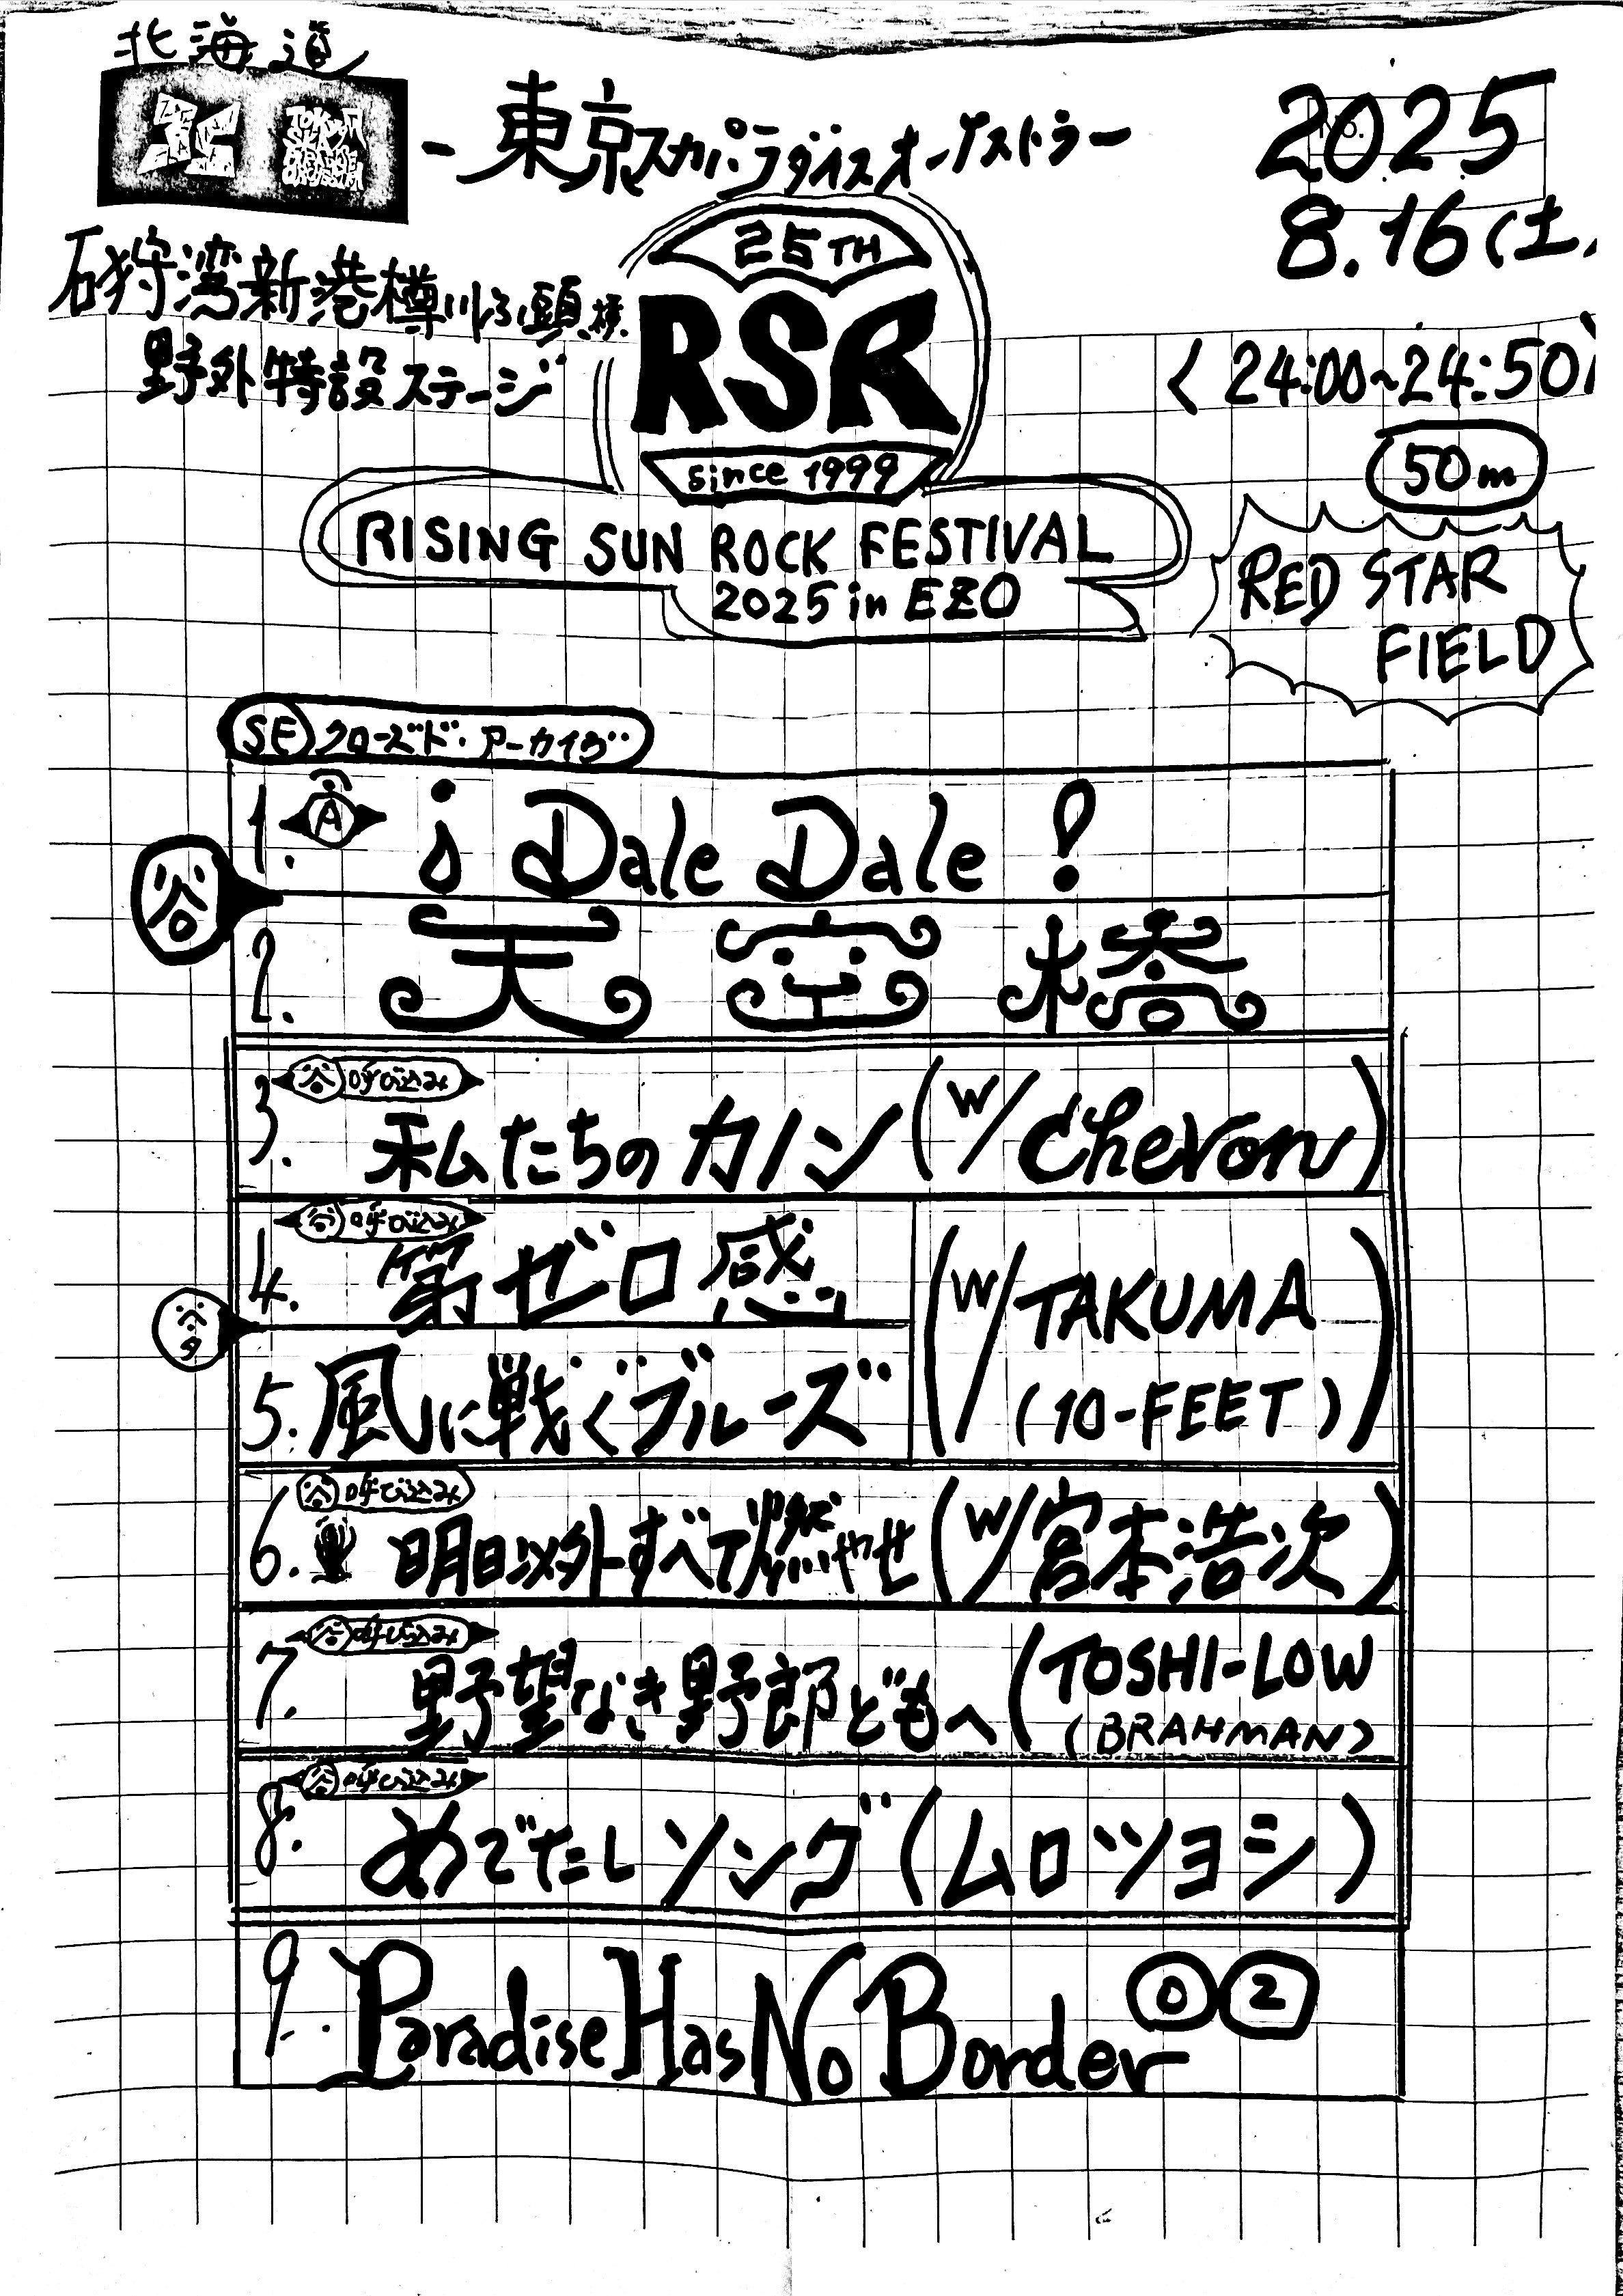 北海道
TOKYO SKA PARADISE ORCHESTRA
- 東京スカパラダイスオーケストラー
2025
8.16(土)
石狩湾新港樽川ふ頭横
野外特設ステージ
25TH
RSR
since 1999
RISING SUN ROCK FESTIVAL
2025 in EZO
〈24:00~24:50〉
50m
RED STAR
FIELD
SE クローズド・アーカイヴ
1. A ¡Dale Dale!
谷
2. 天空橋
3. 谷 呼び込み 私たちのカノン (w/Chevon)
4. 谷 呼び込み 第ゼロ感
(w/TAKUMA
(10-FEET))
谷タ
5. 風に戦ぐブルーズ
6. 谷 呼び込み 明日以外すべて燃やせ (w/宮本浩次)
7. 谷 呼び込み 野望なき野郎どもへ (TOSHI-LOW
(BRAHMAN)
8. 谷 呼び込み めでたしソング (ムロツヨシ)
9. Paradise Has No Border 0 2